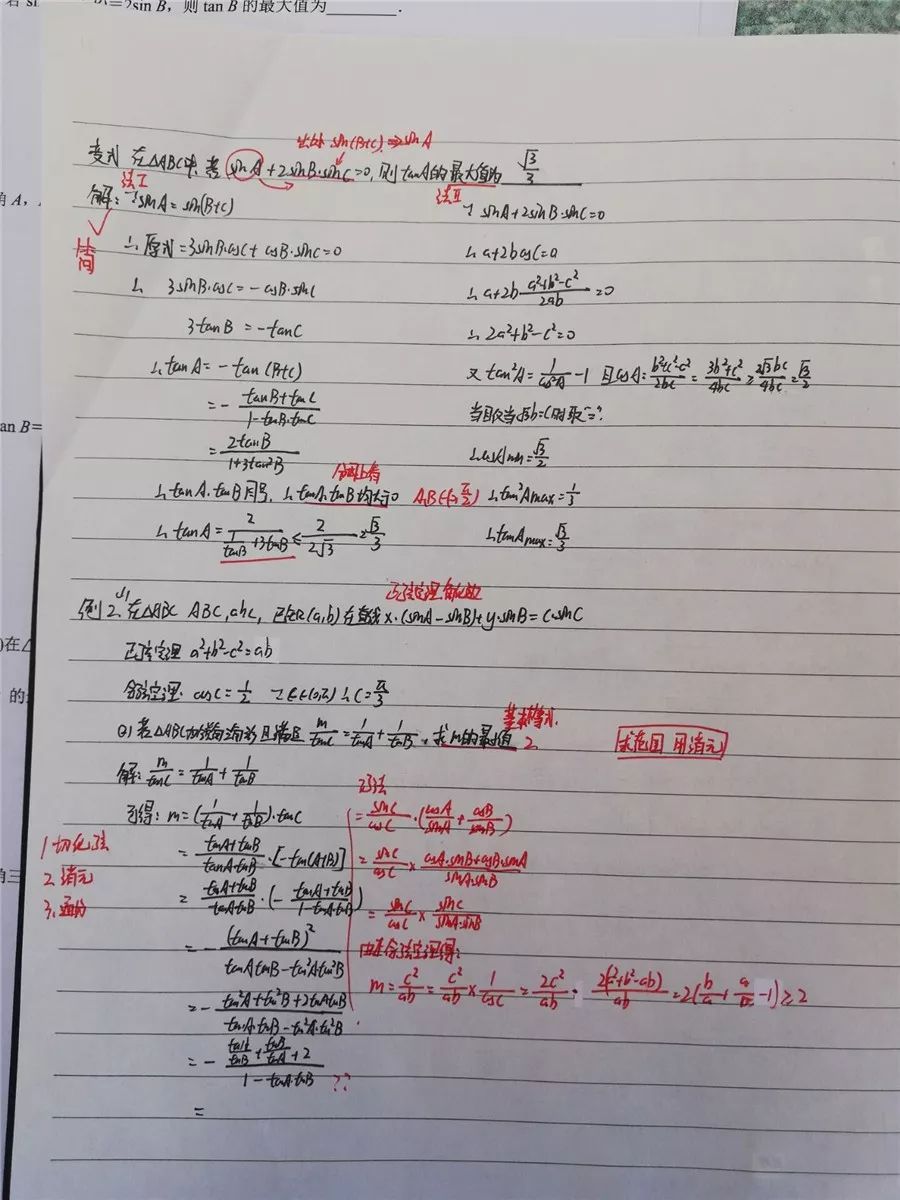 =2sin B，则 tan B 的最大值为______.
出外 sin(B+C)⇒sinA
变式 在△ABC中,若 sinA+2sinB·sinC=0,则tanA的最大值为 √3/3
法I
法II
解:∵sinA=sin(B+C)
简
∴原式=3sinB·cosC+cosB·sinC=0
∴ 3sinB·cosC=-cosB·sinC
3tanB=-tanC
∴tanA=-tan(B+C)
=-(tanB+tanC)/(1-tanB·tanC)
=2tanB/(1+3tan²B)
∴tanA·tanB同号, ∴tanA,tanB均大于0 A,B∈(0,π/2)
∴tanA=2/(1/tanB+3tanB)≤2/(2√3)=√3/3
∵sinA+2sinB·sinC=0
∴a+2bcosC=0
∴a+2b·(a²+b²-c²)/(2ab)=0
∴2a²+b²-c²=0
又tan²A=1/cos²A-1 且cosA=(b²+c²-c²)/(2bc)=(3b²+c²)/(4bc)≥(2√3bc)/(4bc)=√3/2
当且仅当√3b=c时取"="
∴cosAmin=√3/2
∴tan²Amax=1/3
∴tanAmax=√3/3
正弦定理
例2.(1)在△ABC ABC,abc,已知(a,b)在直线x·(sinA-sinB)+y·sinB=c·sinC
正弦定理 a²+b²-c²=ab
余弦定理: cosC=1/2 ∵C∈(0,π)∴C=π/3
基本不等式
(2)若△ABC为锐角三角形且满足 m/tanC=1/tanA+1/tanB,求m的最小值 2
求范围 用消元
解:m/tanC=1/tanA+1/tanB
可得: m=(1/tanA+1/tanB)·tanC
=(tanA+tanB)/(tanA·tanB)·[-tan(A+B)]
=(tanA+tanB)/(tanA·tanB)·(-(tanA+tanB)/(1-tanA·tanB))
=-(tanA+tanB)²/(tanAtanB-tan²Atan²B)
=-(tan²A+tan²B+2tanAtanB)/(tanA·tanB-tan²A·tan²B)
=-(tanA/tanB+tanB/tanA+2)/(1-tanA·tanB) ??
=
1 切化弦
2. 消元
3. 通分
=sinC/cosC·(cosA/sinA+cosB/sinB)
=sinC/cosC×(cosA·sinB+cosB·sinA)/(sinA·sinB)
=sinC/cosC×sinC/(sinA·sinB)
由正余弦定理得:
m=c²/ab=c²/ab×1/cosC=2c²/ab=2(a²+b²-ab)/ab=2(b/a+a/b-1)≥2